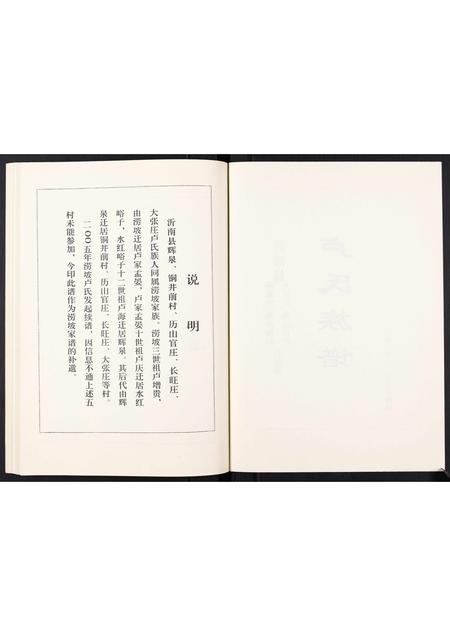 说明
沂南县辉泉、铜井前村、历山官庄、长旺庄、
大张庄卢氏族人同属涝坡家族。涝坡三世祖卢增贵,
由涝坡迁居卢家孟晏,卢家孟晏十世祖卢庆迁居水红
峪子,水红峪子十二世祖卢海迁居辉泉。其后代由辉
泉迁居铜井前村、历山官庄、长旺庄、大张庄等村。
二〇〇五年涝坡卢氏发起续谱,因信息不通上述五
村未能参加,今印此谱作为涝坡家谱的补遗。
卢氏族谱